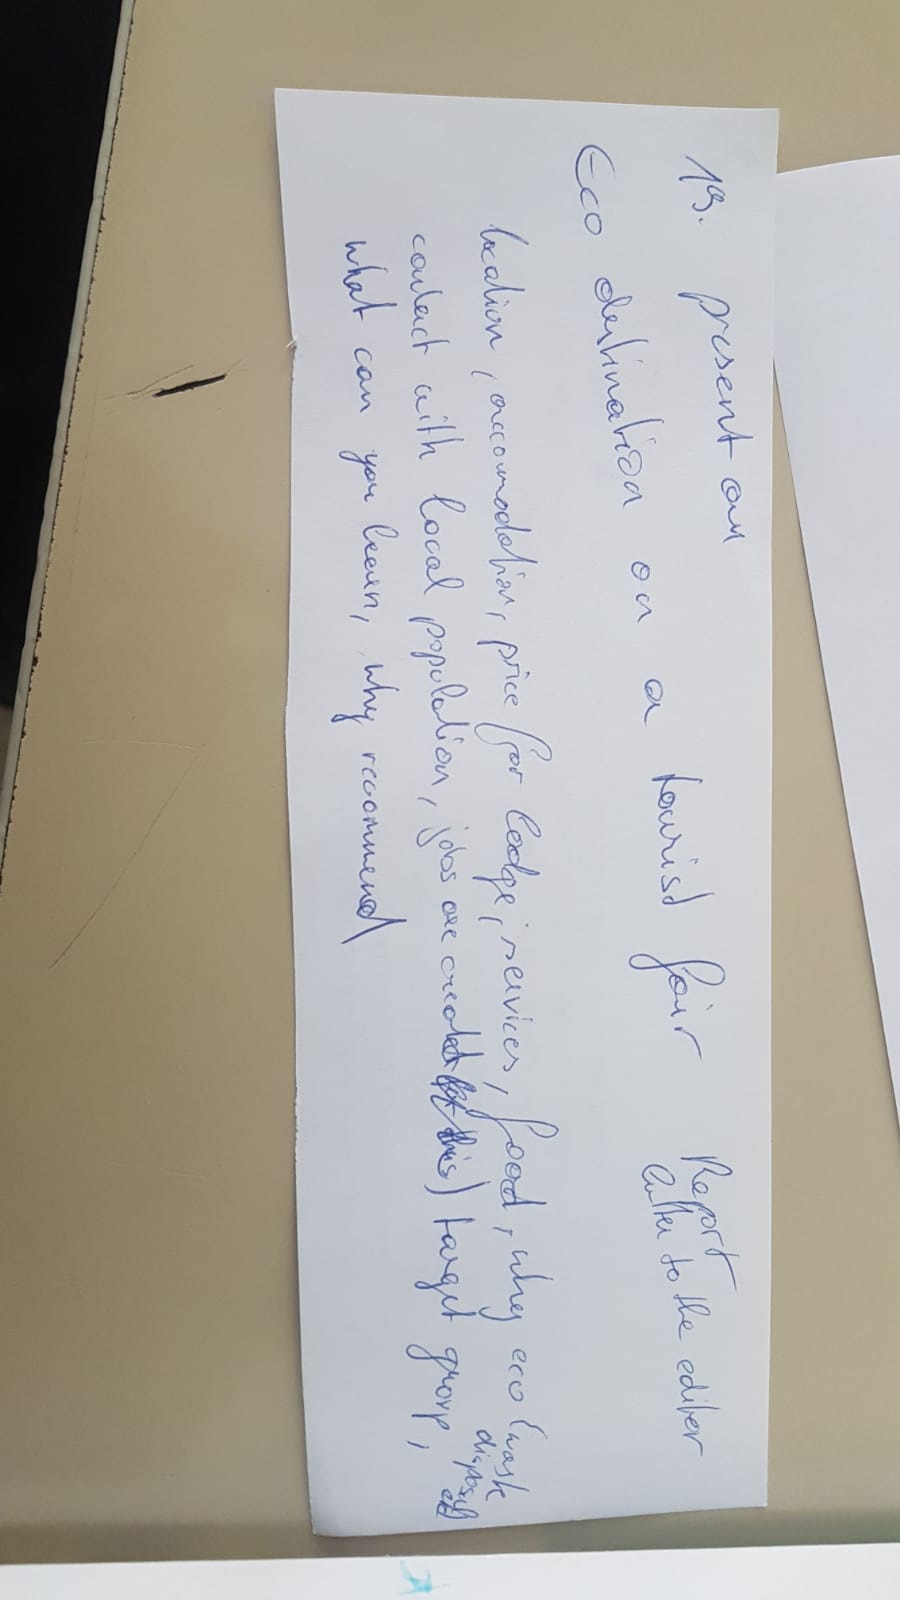 19. present an
Eco destination on a tourist fair
Report
Letter to the editor
location, accomodation, price for lodge, services, food, why eco (waste
disposal
contact with local population, jobs are created) target group,
what can you learn, why recommend